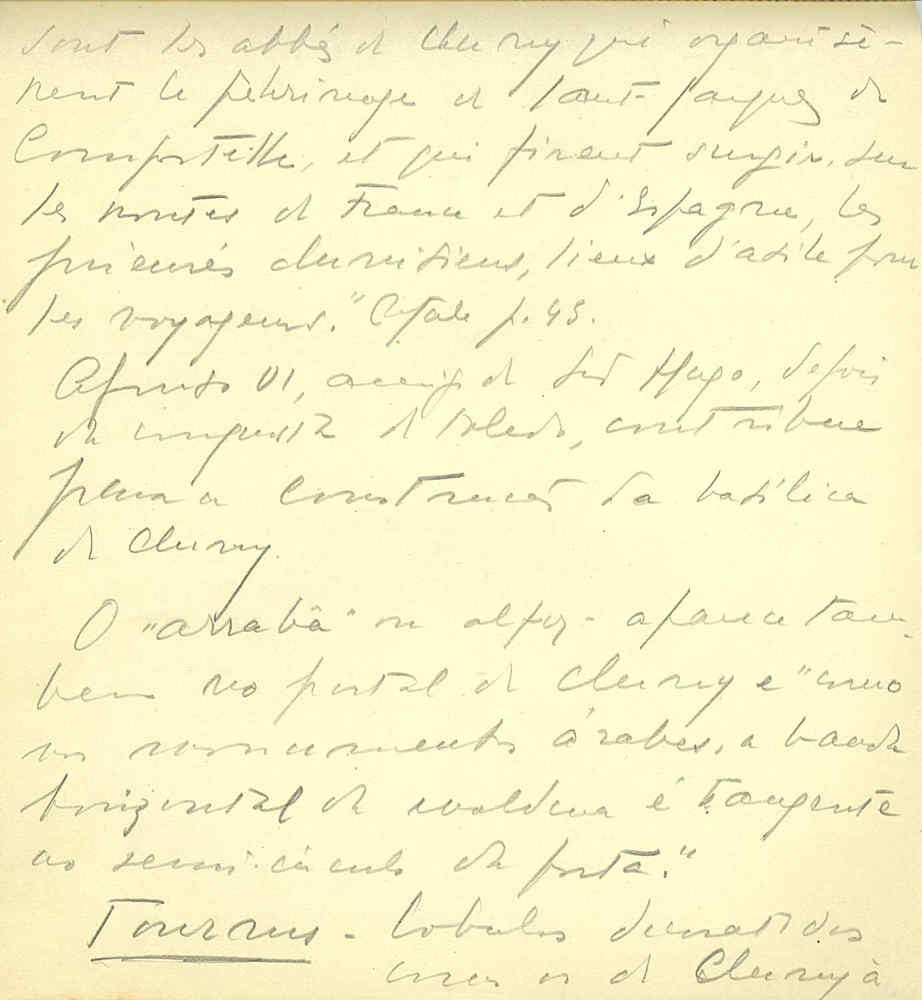 sont les abbés de Cluny qui organisè-
rent le pèlerinage de Saint-Jacques de
Compostelle, et qui firent surgir, sur
les routes de France et d'Espagne, les
prieurés clunisiens, lieux d'asile pour
les voyageurs." p. 43.
Afonso VI, amigo de Hugo, depois
da conquista de Toledo, contribue
para a construção da basílica
de Cluny.
O "arrabâ" ou alfiz - aparece tam-
bem no portal de Cluny e "como
nos monumentos árabes, a banda
horizontal da moldura é tangente
ao semi-circulo da porta."
Tournus - lobulos
como os de Cluny à